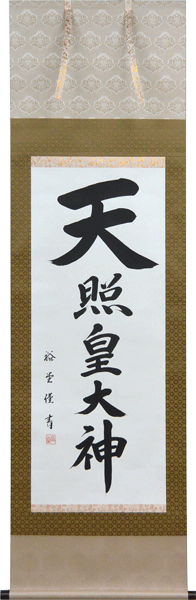 天照皇大神
裕堂謹書